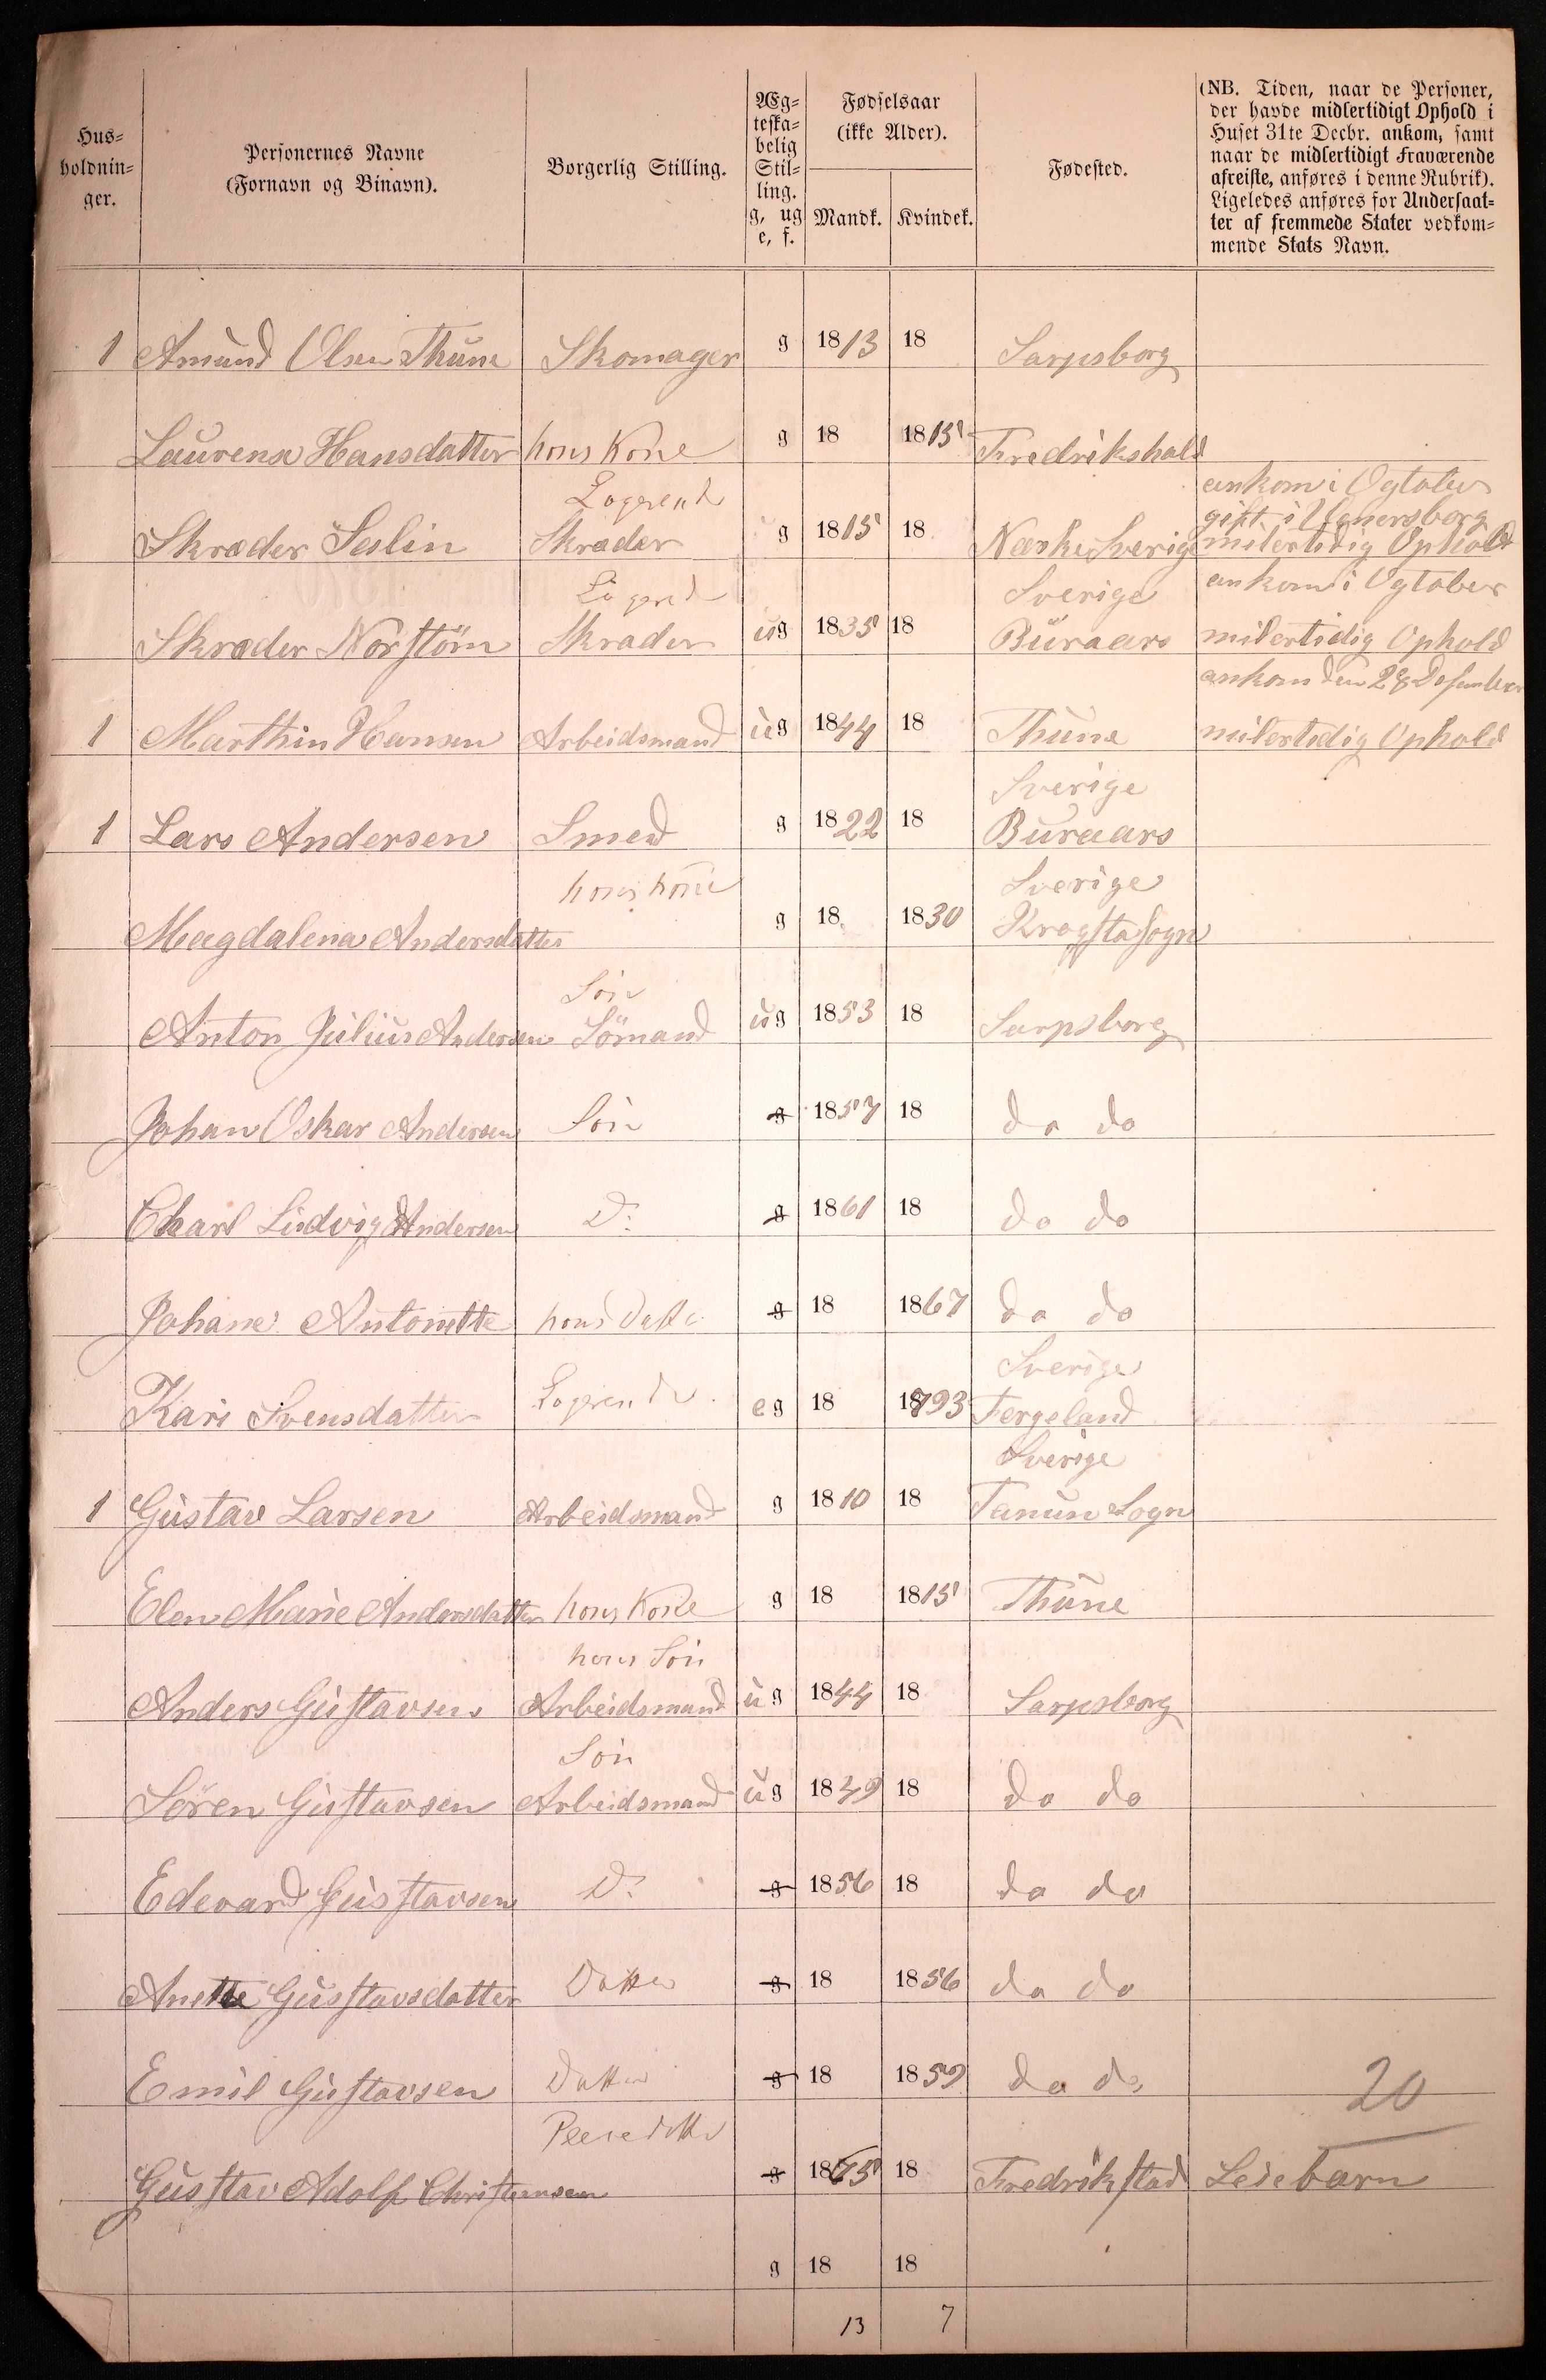 Hus=
holdnin=
ger.
Personernes Navne
(Fornavn og Binavn).
Borgerlig Stilling.
Æg=
teska=
belig
Stil=
ling.
g, ug
e, f.
Fødselsaar
(ikke Alder).
Mandk. Kvindek.
Fødested.
(NB. Tiden, naar de Personer,
der havde midlertidigt Ophold i
Huset 31te Decbr. ankom, samt
naar de midlertidigt Fraværende
afreiste, anføres i denne Rubrik).
Ligeledes anføres for Undersaat=
ter af fremmede Stater vedkom=
mende Stats Navn.
1 Amund Olsen Thune Skomager g 1813 18 Sarpsborg
Laurensa Hansdatter hans Kone g 18 1815 Fredrikshald
Logrende ankom i Ogtober
gift i Venersborg
Skræder Salin Skræder g 1815 18 Nerke Sverige milertidig Ophold
Logrend Sverige ankom i Ogtober
Skræder Norstöm Skrader ug 1835 18 Buraars milertidig Ophold
ankom den 28 Desember
1 Marthin Hansen Arbeidsmand ug 1844 18 Thune milertedig Ophold
Sverige
1 Lars Andersen Smed g 1822 18 Buraars
hans kone Sverige
Magdalena Andersdatter g 18 1830 Kragsta Sogn
Sön
Anton Julius Andersen Sömand ug 1853 18 Sarpsborg
Johan Oskar Andersen Sön g 1857 18 do do
Charl Ludvig Andersen Do g 1861 18 do do
Johane Antonette hans Datter g 18 1867 do do
Sverige
Kari Svensdatter Logrende eg 18 1793 Fergeland
Sverige
1 Gustav Larsen Arbeidsmand g 1810 18 Tanun Sogn
Elen Marie Andersdatter hans Kone g 18 1815 Thune
hans Sön
Anders Gustavsen Arbeidsmand ug 1844 18 Sarpsborg
Sön
Sören Gustavsen Arbeidsmand ug 1849 18 do do
Edevard Gustavsen Do g 1856 18 do do
Anette Gustavsdatter Datter g 18 1856 do do
Emil Gustavsen Datter g 18 1859 do do
20
Gustav Adolf Christensen g 1865 18 Fredrikstad Leiebarn
g 18 18
13 7